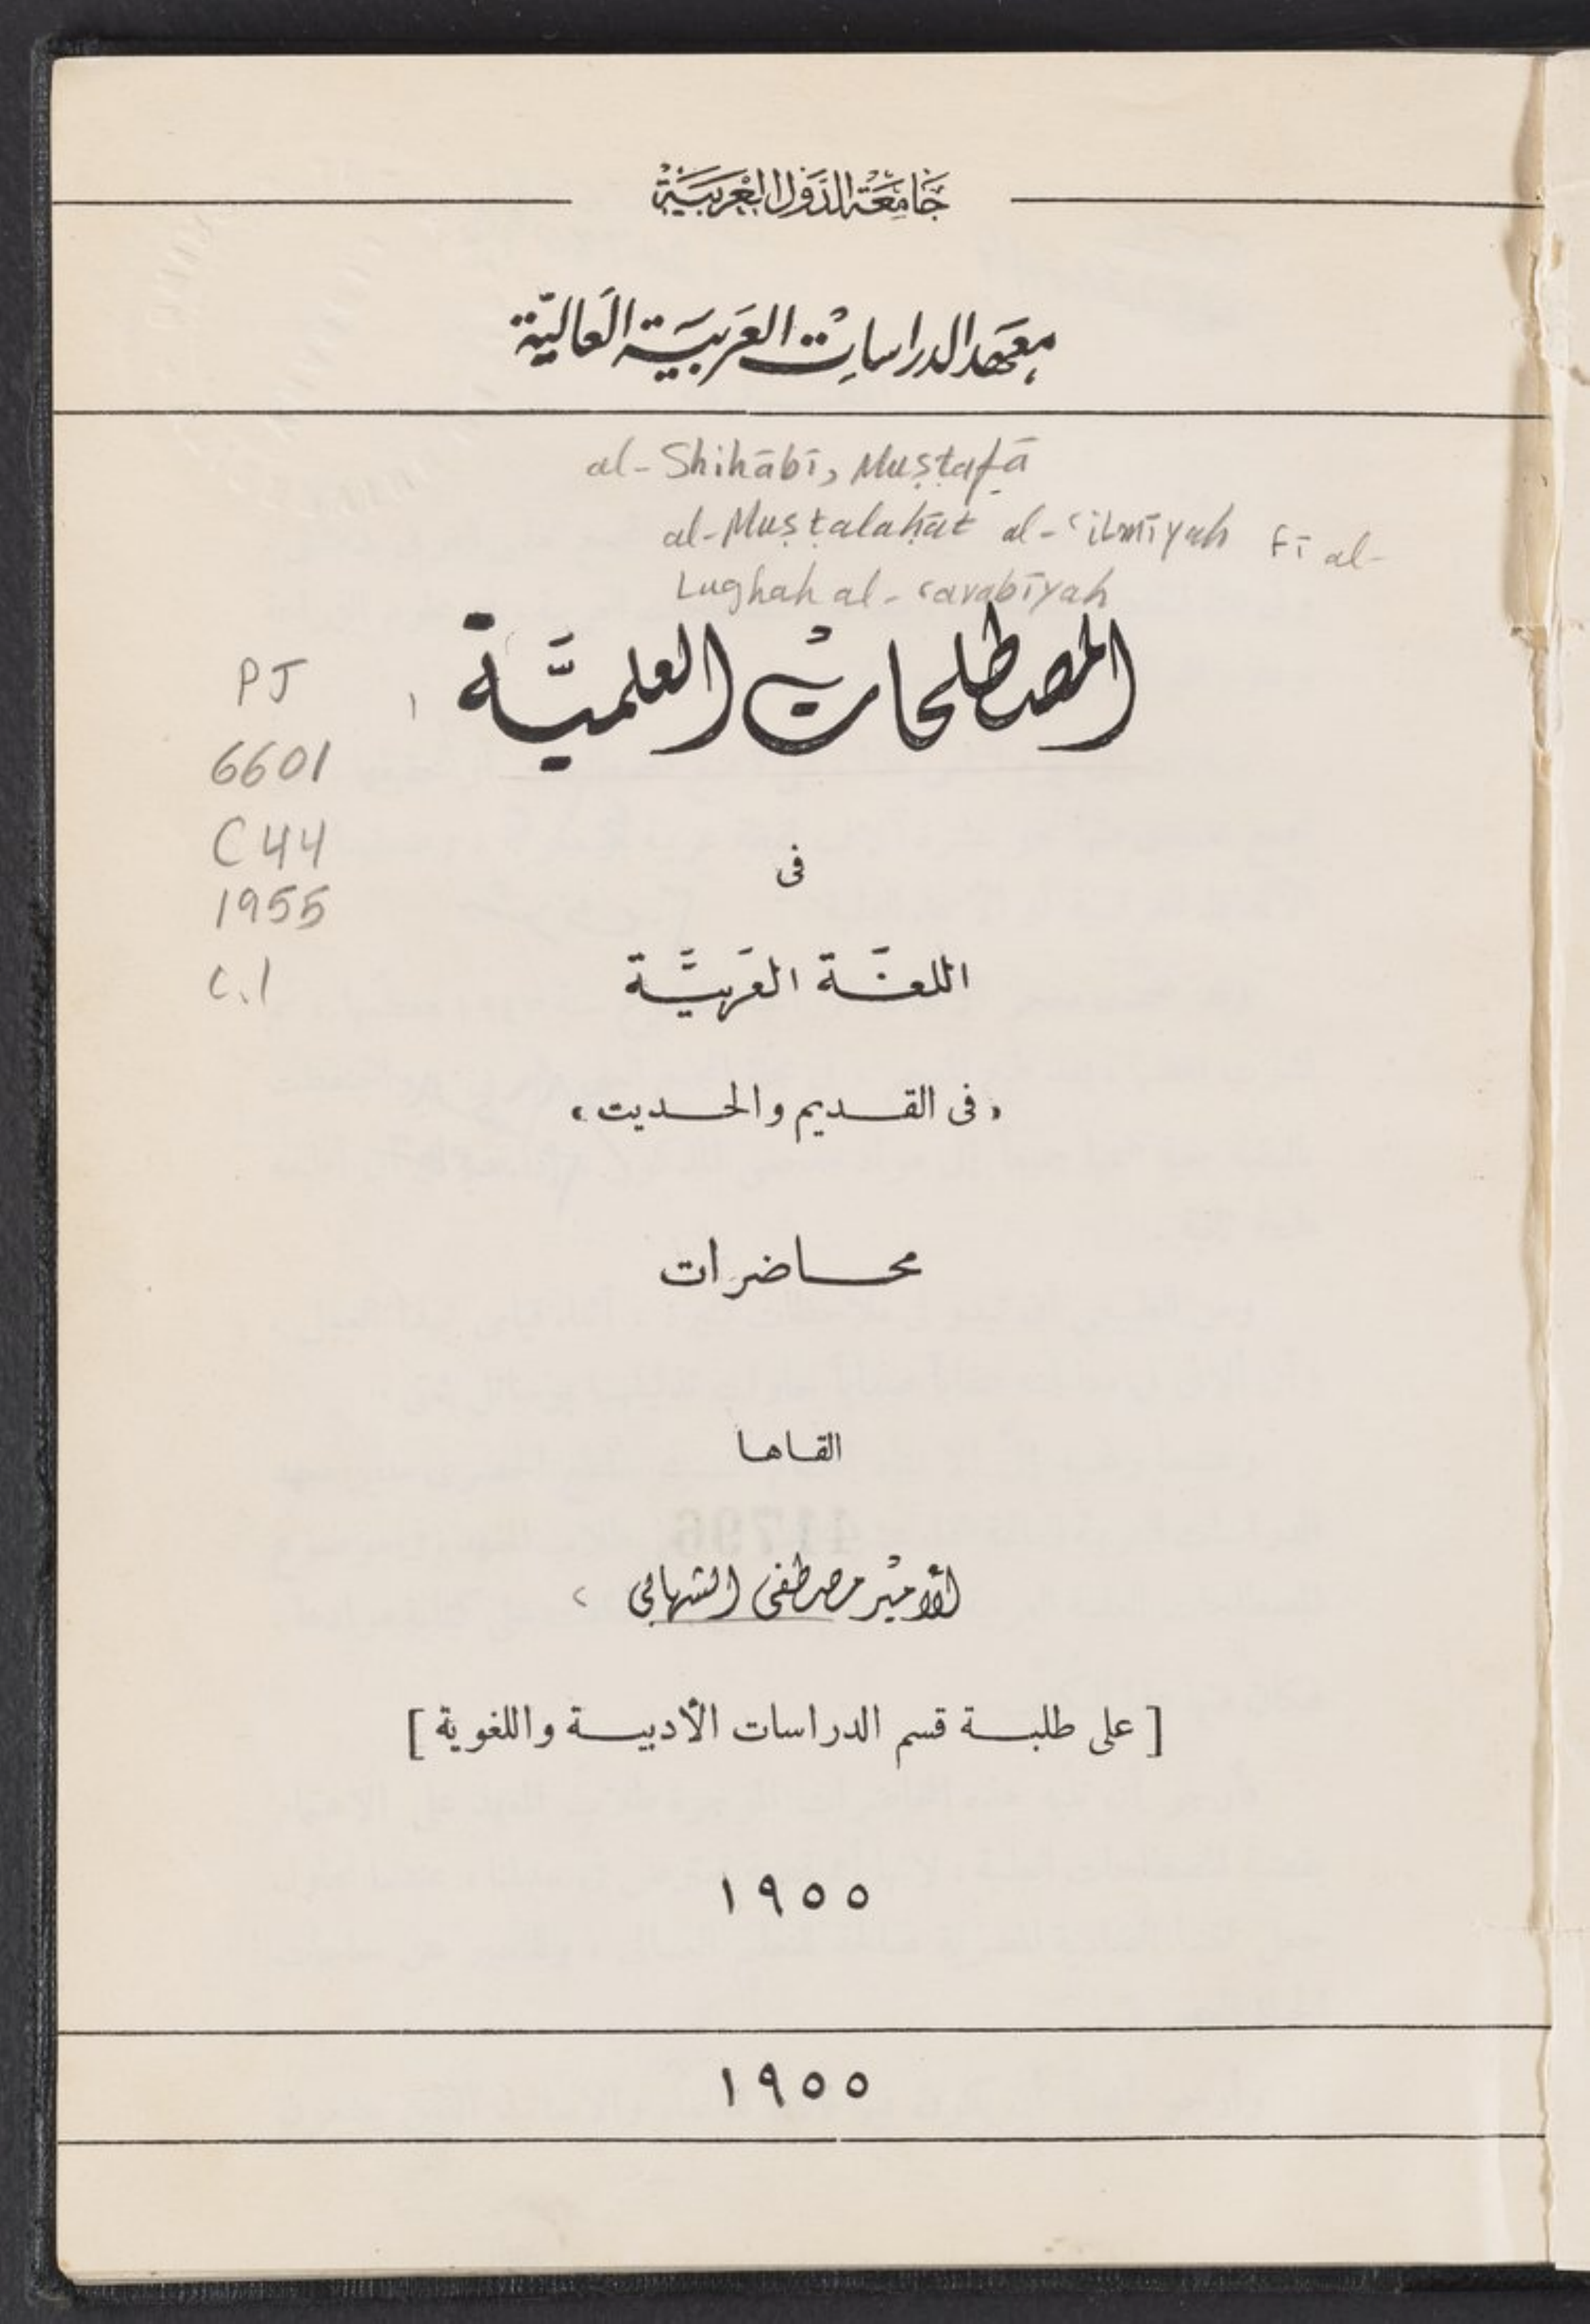 جَامِعَة الدُّوَل العَرَبيَّة
معهد الدراسات العربية العالية
al-Shihābī, Muṣṭafā
al-Muṣṭalaḥāt al-ʿilmīyah fī al-
Lughah al-ʿarabīyah
المصطلحات العلميَّة
PJ
6601
C44
1955
c.1
فى
اللغَة العَربيَّة
«فى القديم والحديث»
محاضرات
القاها
الأمير مصطفى الشهابي
[ على طلبة قسم الدراسات الأدبية واللغوية ]
١٩٥٥
١٩٥٥